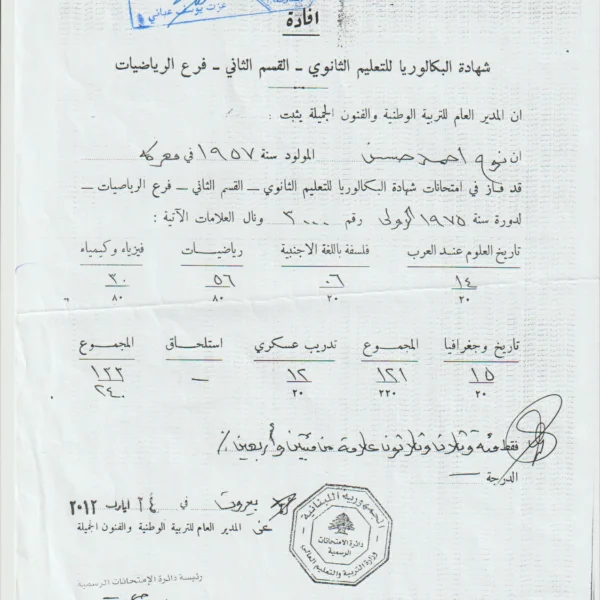 عزت يوسف عدائي
افادة
شهادة البكالوريا للتعليم الثانوي ــ القسم الثاني ــ فرع الرياضيات
ان المدير العام للتربية الوطنية والفنون الجميلة يثبت :
ان نوح احمد حسن المولود سنة ١٩٥٧ في معركه
قد فاز في امتحانات شهادة البكالوريا للتعليم الثانوي ــ القسم الثاني ــ فرع الرياضيات ــ
لدورة سنة ١٩٧٥ الاولى رقم ٣٠٠٠ ونال العلامات الآتية :
تاريخ العلوم عند العرب فلسفة باللغة الاجنبية رياضيات فيزياء وكيمياء
١٤ ٠٦ ٥٦ ٣٠
٢٠ ٢٠ ٨٠ ٨٠
تاريخ وجغرافيا المجموع تدريب عسكري استلحاق المجموع
١٥ ١٢١ ١٢ — ١٣٣
٢٠ ٢٢٠ ٢٠ ٢٤٠
فقط مئة وثلاث وثلاثون علامة من مئتين وأربعين /.
الدرجة —
بيروت في ٢٤ ايار ٢٠١٢
عن المدير العام للتربية الوطنية والفنون الجميلة
الجمهورية اللبنانية
دائرة الامتحانات
الرسمية
وزارة التربية والتعليم العالي
رئيسة دائرة الإمتحانات الرسمية